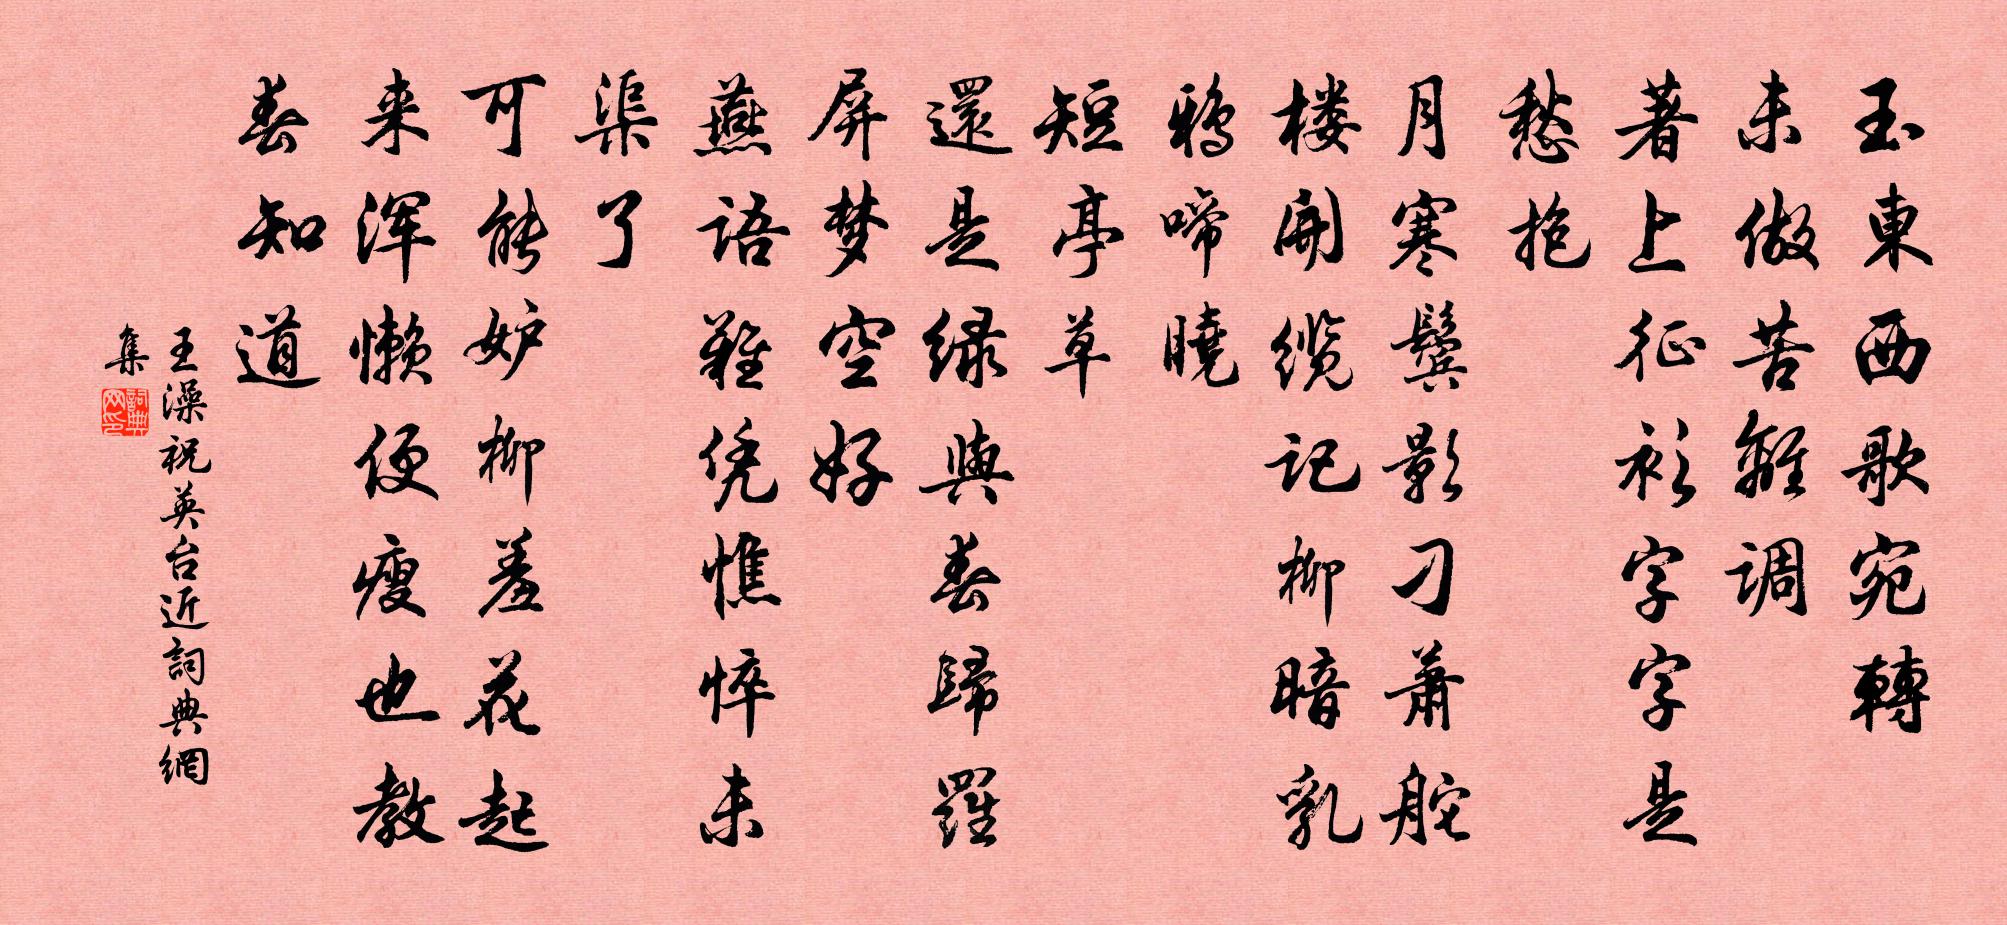 玉東西歌宛轉
未做苦離調
著上征衫字字是
愁抱
月寒鬓影刁萧舵
楼開缆记柳暗乳
鸦啼曉
短亭草
還是緑與春歸羅
屏梦空好
燕語難凭憔悴未
渠了
可能妒柳羞花起
来浑懒便瘦也教
春知道
王澡祝英台近詞典網
集
詞典
网印